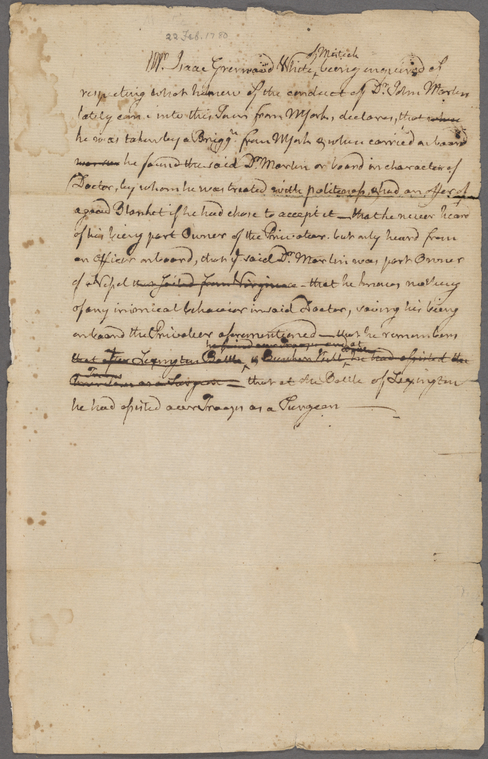 22 Feb. 1780
of Mistick
Mr. Isaac Greenwood White being enquired of
respecting what he knew of the conduct of Dr. John Martin
lately came into this Town from NYork, declares, that
he was taken by a Brigg from NYork & when carried on board
he found the said Dr. Martin on board in character of
Doctor, by whom he was treated with politeness, & had an offer of
a good Blanket if he had chose to accept it — that he never hear
of his being part Owner of the Privateer, but only heard from
an Officer on board, that ye said Dr. Martin was part Owner
of a Vessel that sailed from Virginia — that he knows nothing
of any inimical behavior in said Doctor, saving his being
on board the Privateer aforementioned — that he remembers
he joined our Troops and at
that after Lexington Battle & Bunker Hill he had assisted the
Troops
as a Surgeon — that at the Battle of Lexington
he had assisted our Troops as a Surgeon —